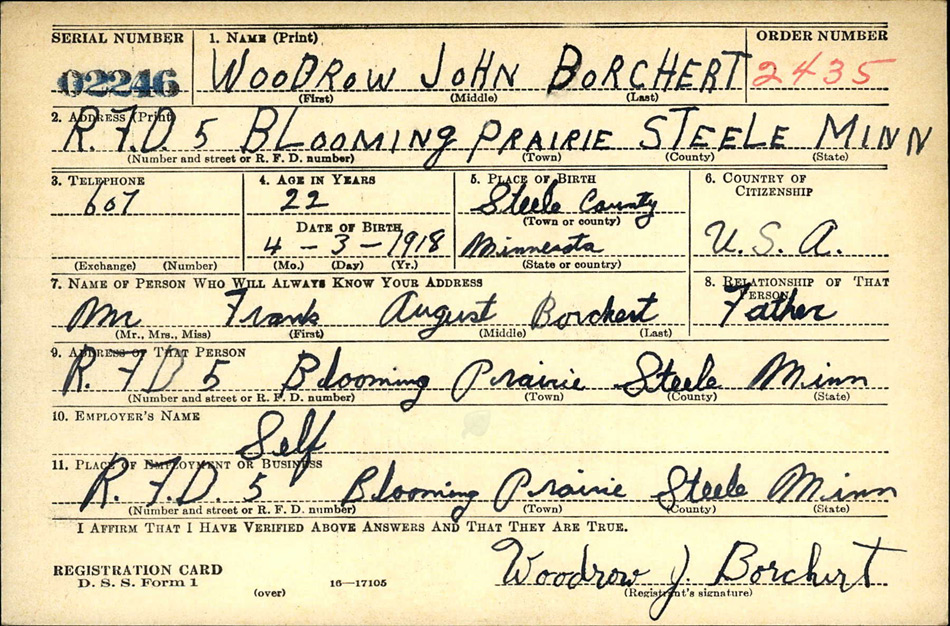 SERIAL NUMBER 1. NAME (Print) ORDER NUMBER
02246 WOODROW JOHN BORCHERT 2435
(First) (Middle) (Last)
2. ADDRESS (Print)
R.F.D. 5 BLOOMING PRAIRIE STEELE MINN
(Number and street or R. F. D. number) (Town) (County) (State)
3. TELEPHONE 4. AGE IN YEARS 5. PLACE OF BIRTH 6. COUNTRY OF CITIZENSHIP
607 22 Steele County
(Town or county)
DATE OF BIRTH
4-3-1918 Minnesota U.S.A.
(Exchange) (Number) (Mo.) (Day) (Yr.) (State or country)
7. NAME OF PERSON WHO WILL ALWAYS KNOW YOUR ADDRESS 8. RELATIONSHIP OF THAT PERSON
Mr Frank August Borchert Father
(Mr., Mrs., Miss) (First) (Middle) (Last)
9. ADDRESS OF THAT PERSON
R. F D 5 Blooming Prairie Steele Minn
(Number and street or R. F. D. number) (Town) (County) (State)
10. EMPLOYER'S NAME
Self
11. PLACE OF EMPLOYMENT OR BUSINESS
R. F.D. 5 Blooming Prairie Steele Minn
(Number and street or R. F. D. number) (Town) (County) (State)
I AFFIRM THAT I HAVE VERIFIED ABOVE ANSWERS AND THAT THEY ARE TRUE.
REGISTRATION CARD
D. S. S. Form 1 16—17105 Woodrow J. Borchert
(over) (Registrant's signature)